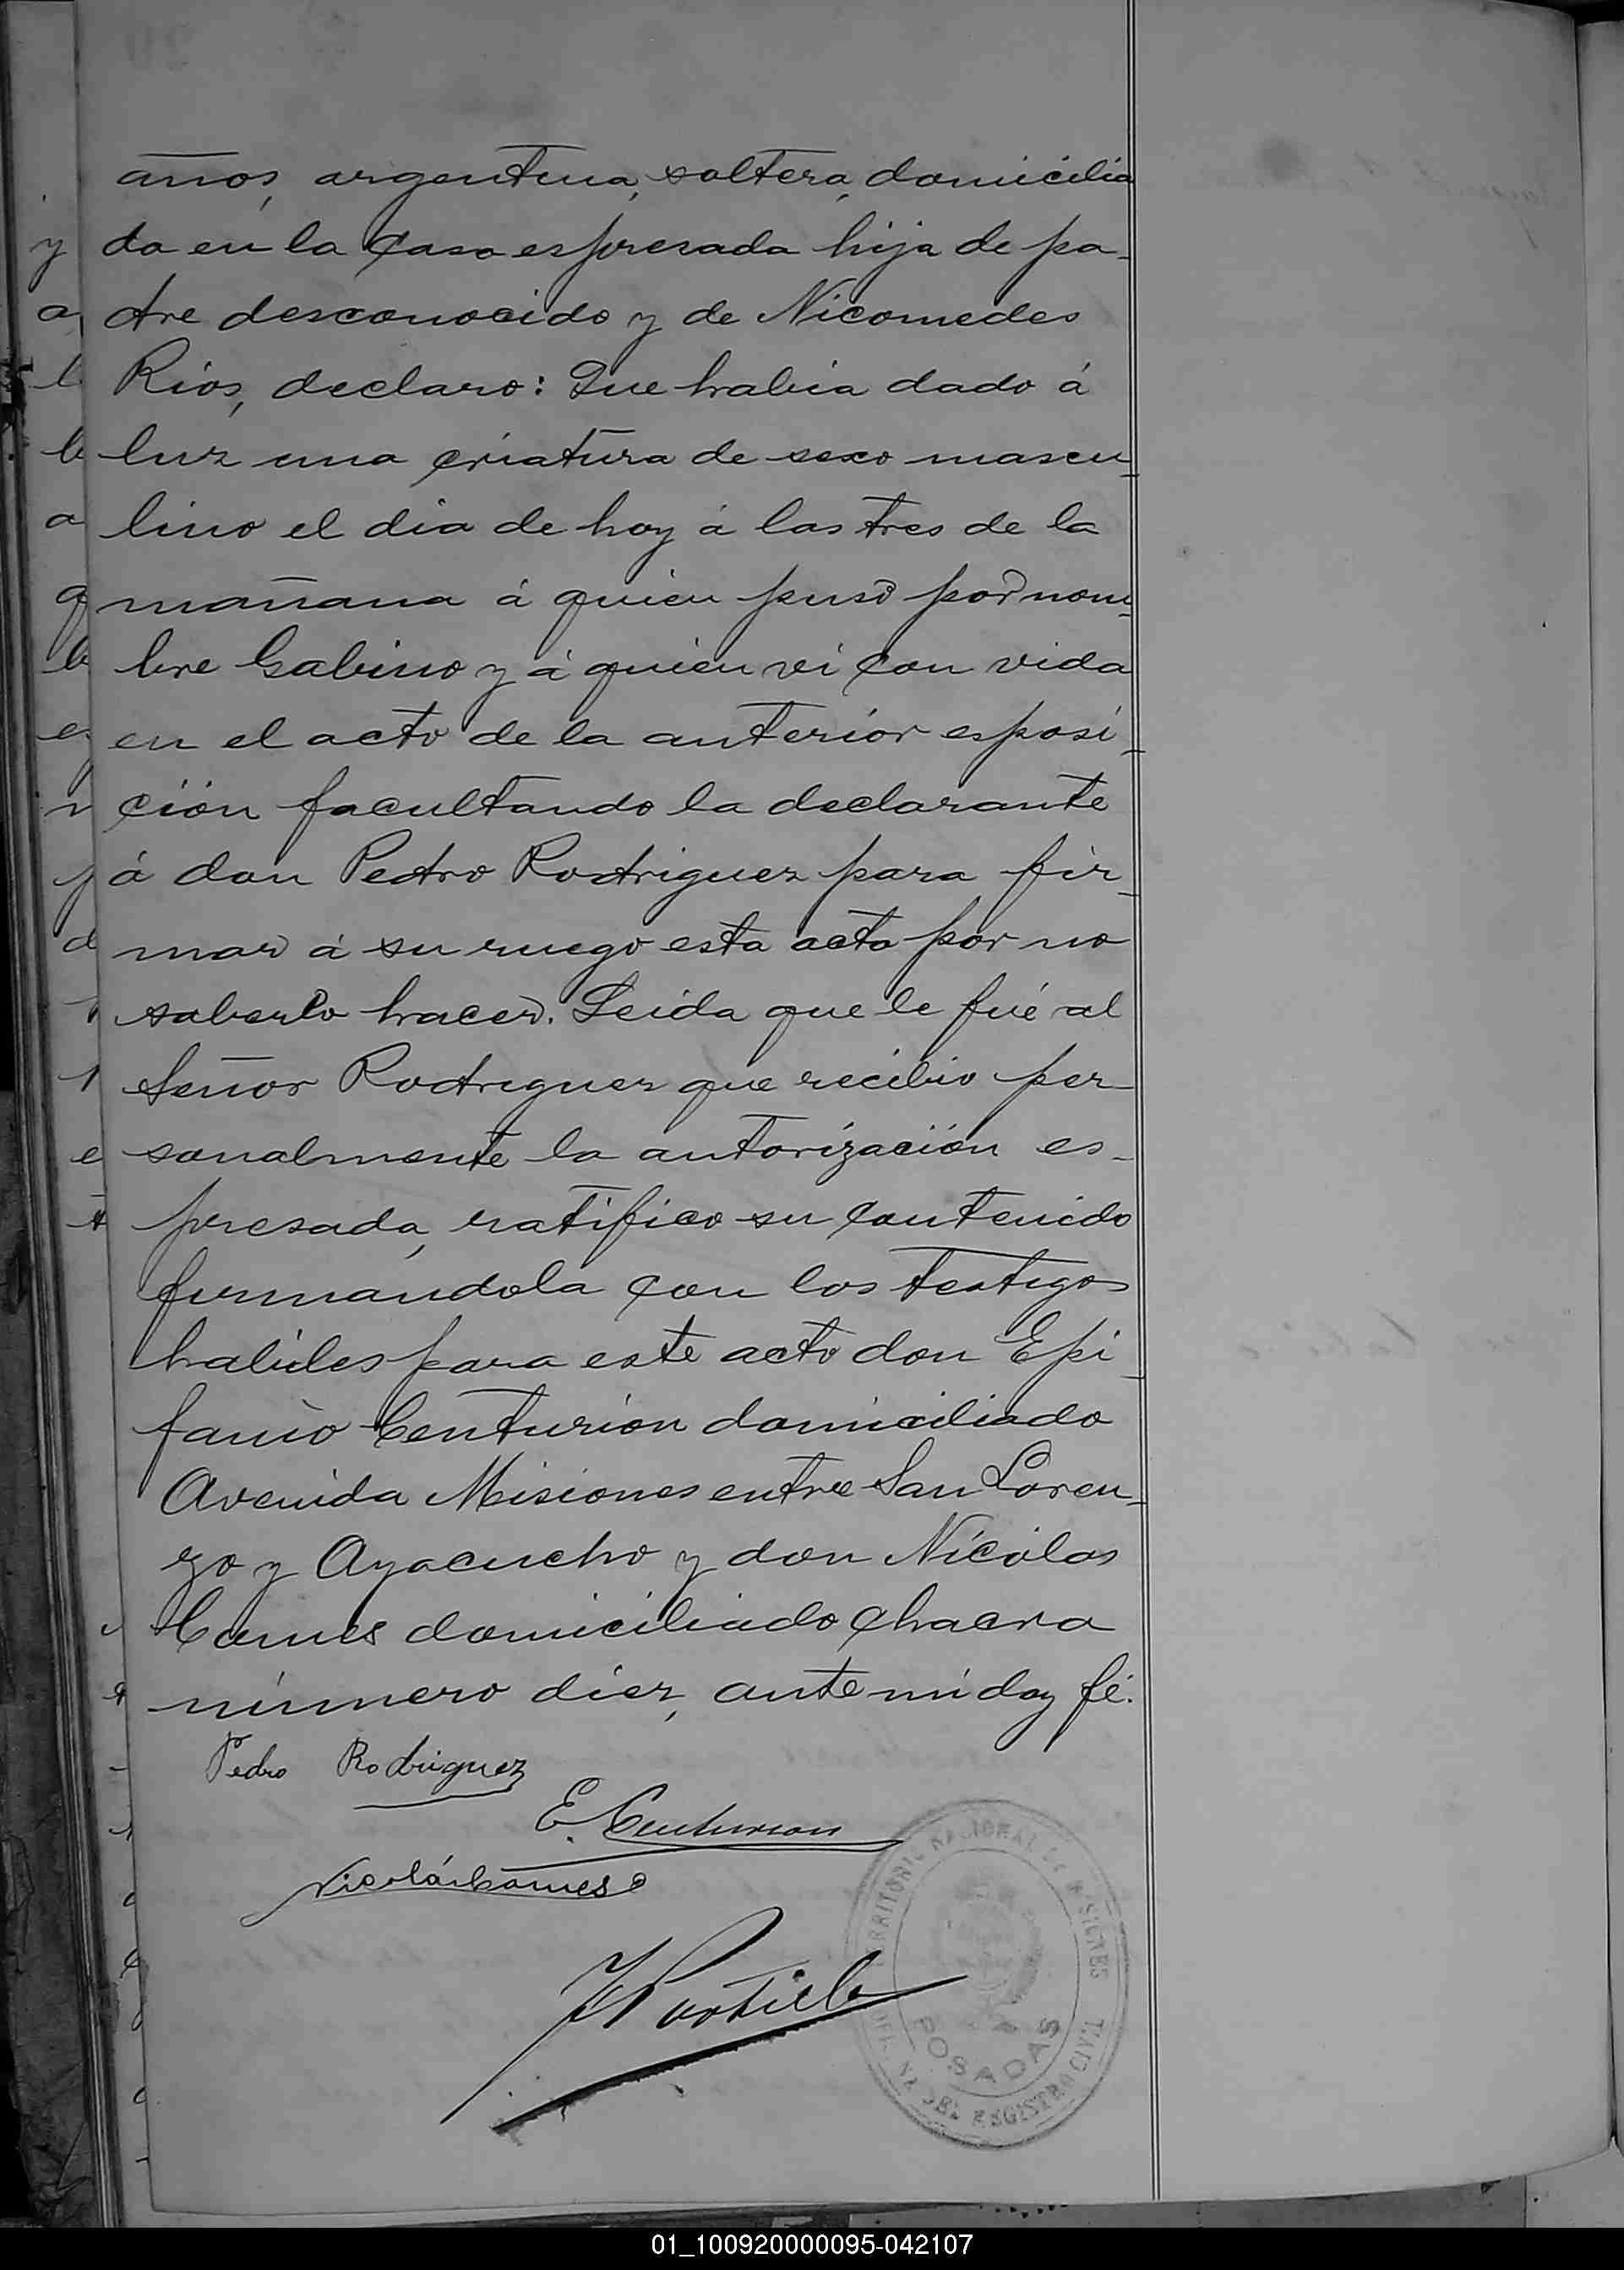 años, argentina, soltera, domicilia
da en la casa espresada hija de pa-
dre desconocido y de Nicomedes
Rios, declaro: Que habia dado á
luz una criatura de sexo mascu-
lino el dia de hoy á las tres de la
mañana á quien puso por nom-
bre Gabino y á quien vi con vida
en el acto de la anteriór esposi-
ción facultando la declarante
á don Pedro Rodriguez para fir-
mar á su ruego esta acta por no
saberlo hacer. Leida que le fué al
Señor Rodriguez que recibio per-
sonalmente la autorización es-
presada, ratifico su contenido
firmandola con los testigos
habiles para este acto don Epi-
fanio Centurión domiciliado
Avenida Misiones entre San Loren-
zo y Ayacucho y don Nicolas
Camés domiciliado chacra
número diez, ante mi doy fé.
Pedro Rodriguez
E. Centurion
Nicolás Camés
TERRITORIO NACIONAL DE MISIONES
POSADAS
DEL REGISTRO CIVIL
01_100920000095-042107